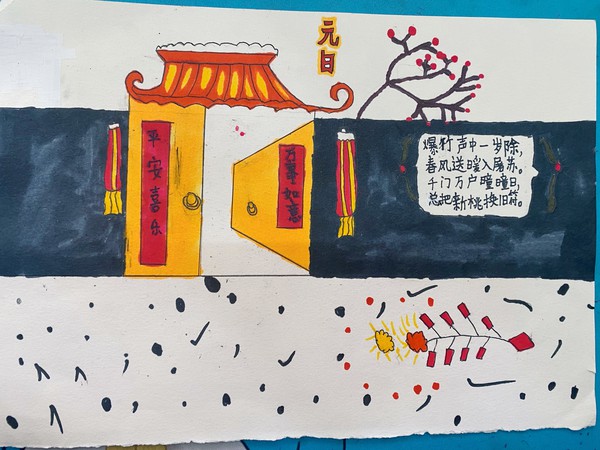 元日
平安喜乐
万事如意
爆竹声中一岁除,
春风送暖入屠苏。
千门万户曈曈日,
总把新桃换旧符。